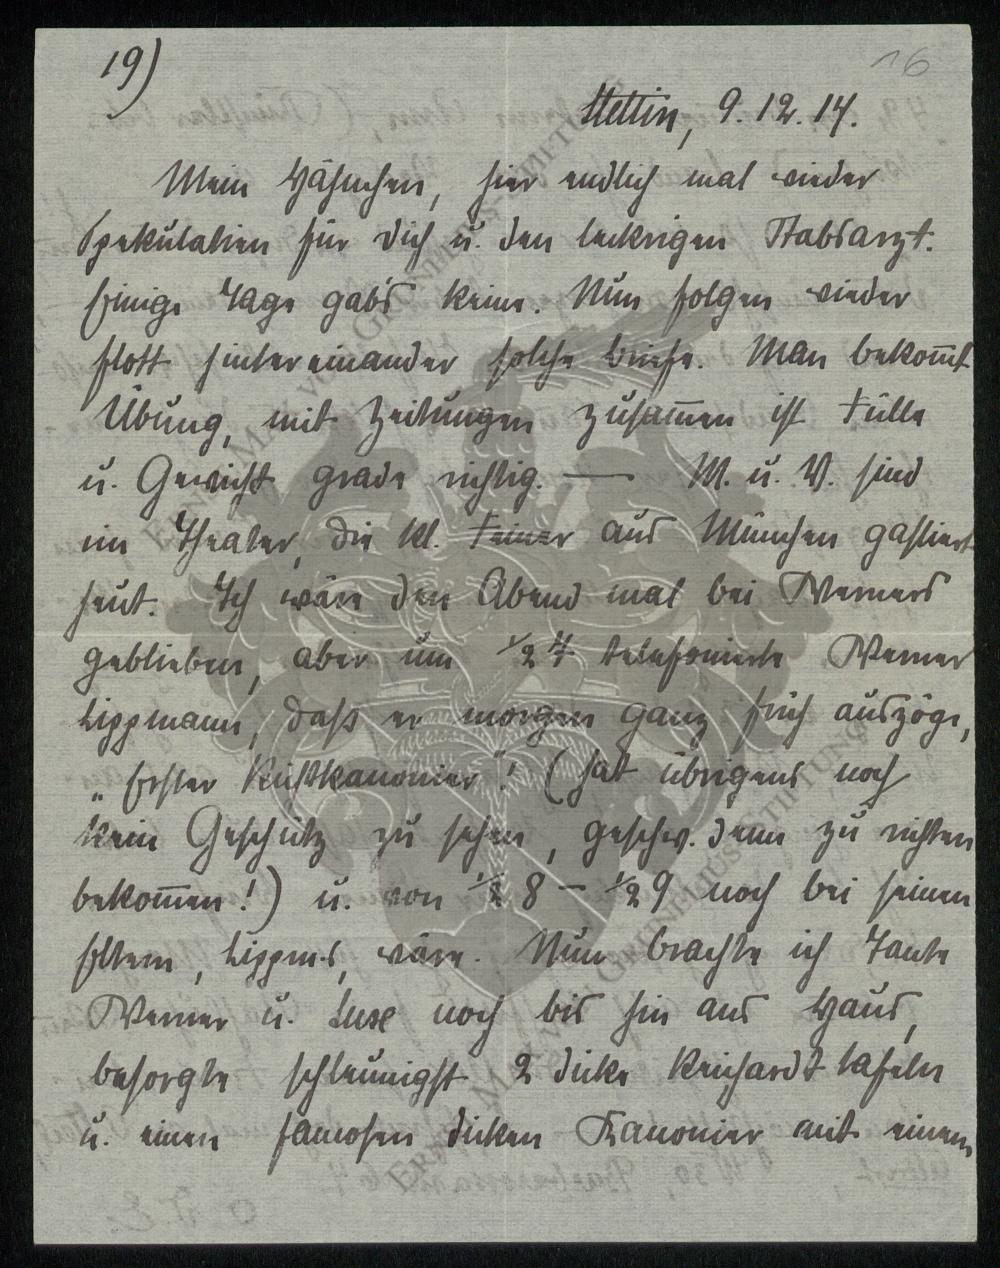 19)
16
Stettin, 9.12.14.
Mein Hähnchen, hier endlich mal wieder
Spekulatien für Dich u. den leckrigen Stabsarzt.
Einige Tage gab's keine. Nun folgen wieder
flott hintereinander solche Briefe. Man bekom̅t
Übung, mit Zeitungen zusam̅en ist Fülle
u. Gewicht grade richtig. — M. u. V. sind
im Theater, die kl. aus München gastiert
heut. Ich wäre den Abend mal bei Werners
geblieben, aber um ½ 7 telefonierte Werner
Lippmann, daß er morgen ganz früh auszöge,
„Erster Richtkanonier"! (hat übrigens noch
kein Geschütz zu sehen, geschw. denn zu richten
bekom̅en!) u. von ½ 8 – ½ 9 noch bei seinen
Eltern, Lippm-s, wäre. Nun brachte ich Tante
Werner u. Luxe noch bis hin ans Haus,
besorgte schleunigst 2 dicke Reichardt tafeln
u. einen famosen dicken Kanonier mit einem